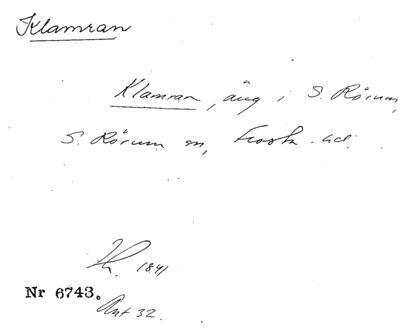 Klamran
Klamran, äng i S. Rörum,
S. Rörum sn, Frosta hd.
1841
Nr 6743.
Ant 32.